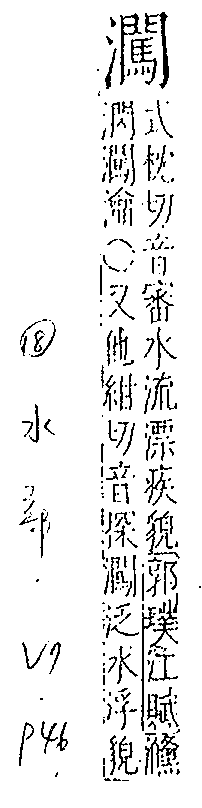 式枕切音審水流漂疾貌郭璞江賦
〇又他紺切音探泛水浮貌
⑱水部.V9.P46.